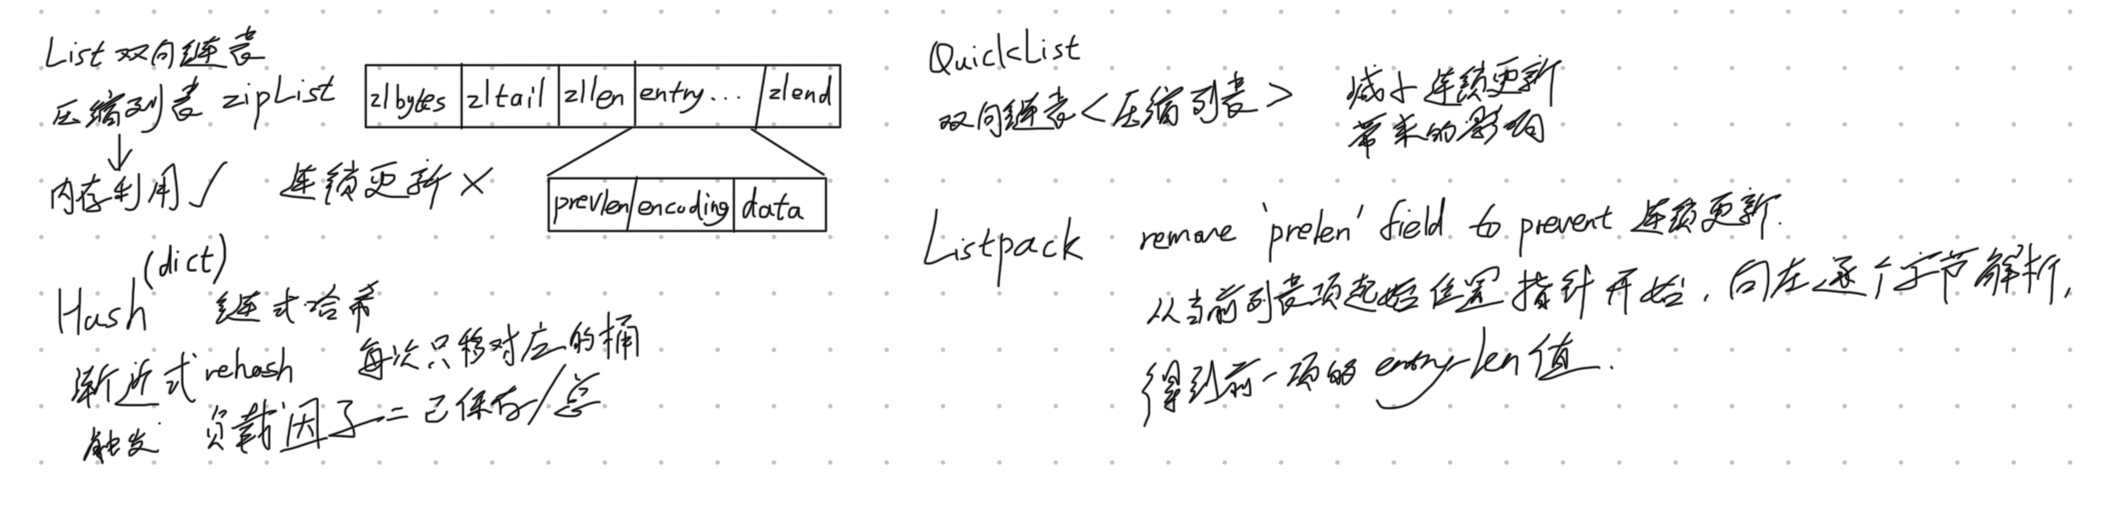 List 双向链表
压缩列表 zipList
zlbytes zltail zllen entry... zlend
内存利用✓ 连锁更新×
prevlen encoding data
Hash (dict) 链式哈希
渐近式rehash 每次只移对应的桶
触发 负载因子=已保存/总
QuickList
双向链表<压缩列表> 减小连锁更新
带来的影响
Listpack remove 'prelen' field to prevent 连锁更新.
从当前列表项起始位置指针开始,向左逐个字节解析,
得到前一项的 entry-len值.